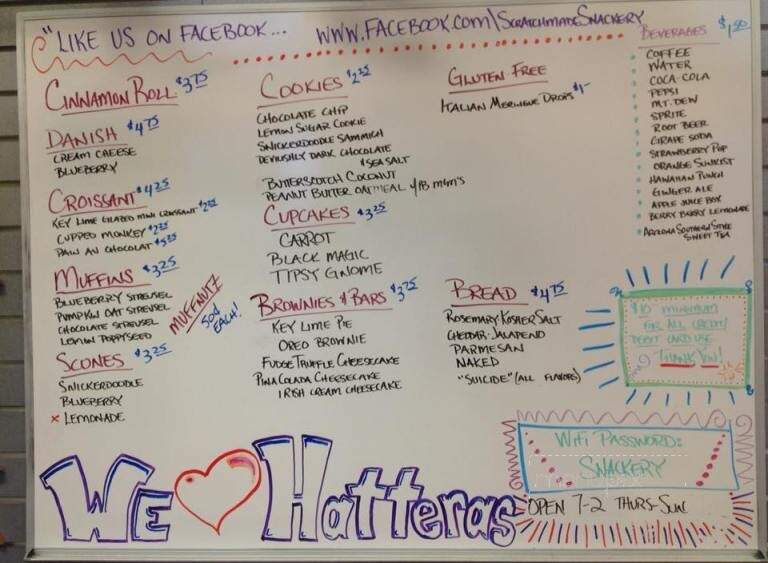 "LIKE US ON FACEBOOK... WWW.FACEBOOK.COM/SCRATCHMADESNACKERY
CINNAMON ROLL $3.75
DANISH $4.75
CREAM CHEESE
BLUEBERRY
CROISSANT $4.25
KEY LIME GLAZED MINI CROISSANT $2.25
CUPPED MONKEY $2.25
PAIN AU CHOCOLAT $5.25
MUFFINS $3.25
BLUEBERRY STREUSEL
PUMPKIN OAT STREUSEL
CHOCOLATE STREUSEL
LEMON POPPYSEED
MUFFNUTZ
50¢
EACH!
SCONES $3.25
SNICKERDOODLE
BLUEBERRY
x LEMONADE
COOKIES $2.25
CHOCOLATE CHIP
LEMON SUGAR COOKIE
SNICKERDOODLE SAMMICH
DEVILISHLY DARK CHOCOLATE
& SEA SALT
BUTTERSCOTCH COCONUT
PEANUT BUTTER OATMEAL W/PB M&M'S
CUPCAKES $3.25
CARROT
BLACK MAGIC
TIPSY GNOME
BROWNIES & BARS $3.75
KEY LIME PIE
OREO BROWNIE
FUDGE TRUFFLE CHEESECAKE
PINA COLADA CHEESECAKE
IRISH CREAM CHEESECAKE
GLUTEN FREE
ITALIAN MERINGUE DROPS $1-
BREAD $4.75
ROSEMARY KOSHER SALT
CHEDDAR-JALAPENO
PARMESAN
NAKED
"SUICIDE" (ALL FLAVORS)
BEVERAGES $1.50
COFFEE
WATER
COCA-COLA
PEPSI
MT. DEW
SPRITE
ROOT BEER
GRAPE SODA
STRAWBERRY POP
ORANGE SUNKIST
HAWAIIAN PUNCH
GINGER ALE
APPLE JUICE BOX
BERRY BERRY LEMONADE
ARIZONA SOUTHERN STYLE
SWEET TEA
$10 MINIMUM
FOR ALL CREDIT/
DEBIT CARD USE
THANK YOU!
WIFI PASSWORD:
SNACKERY
OPEN 7-2 THURS-SUN
WE HATTERAS